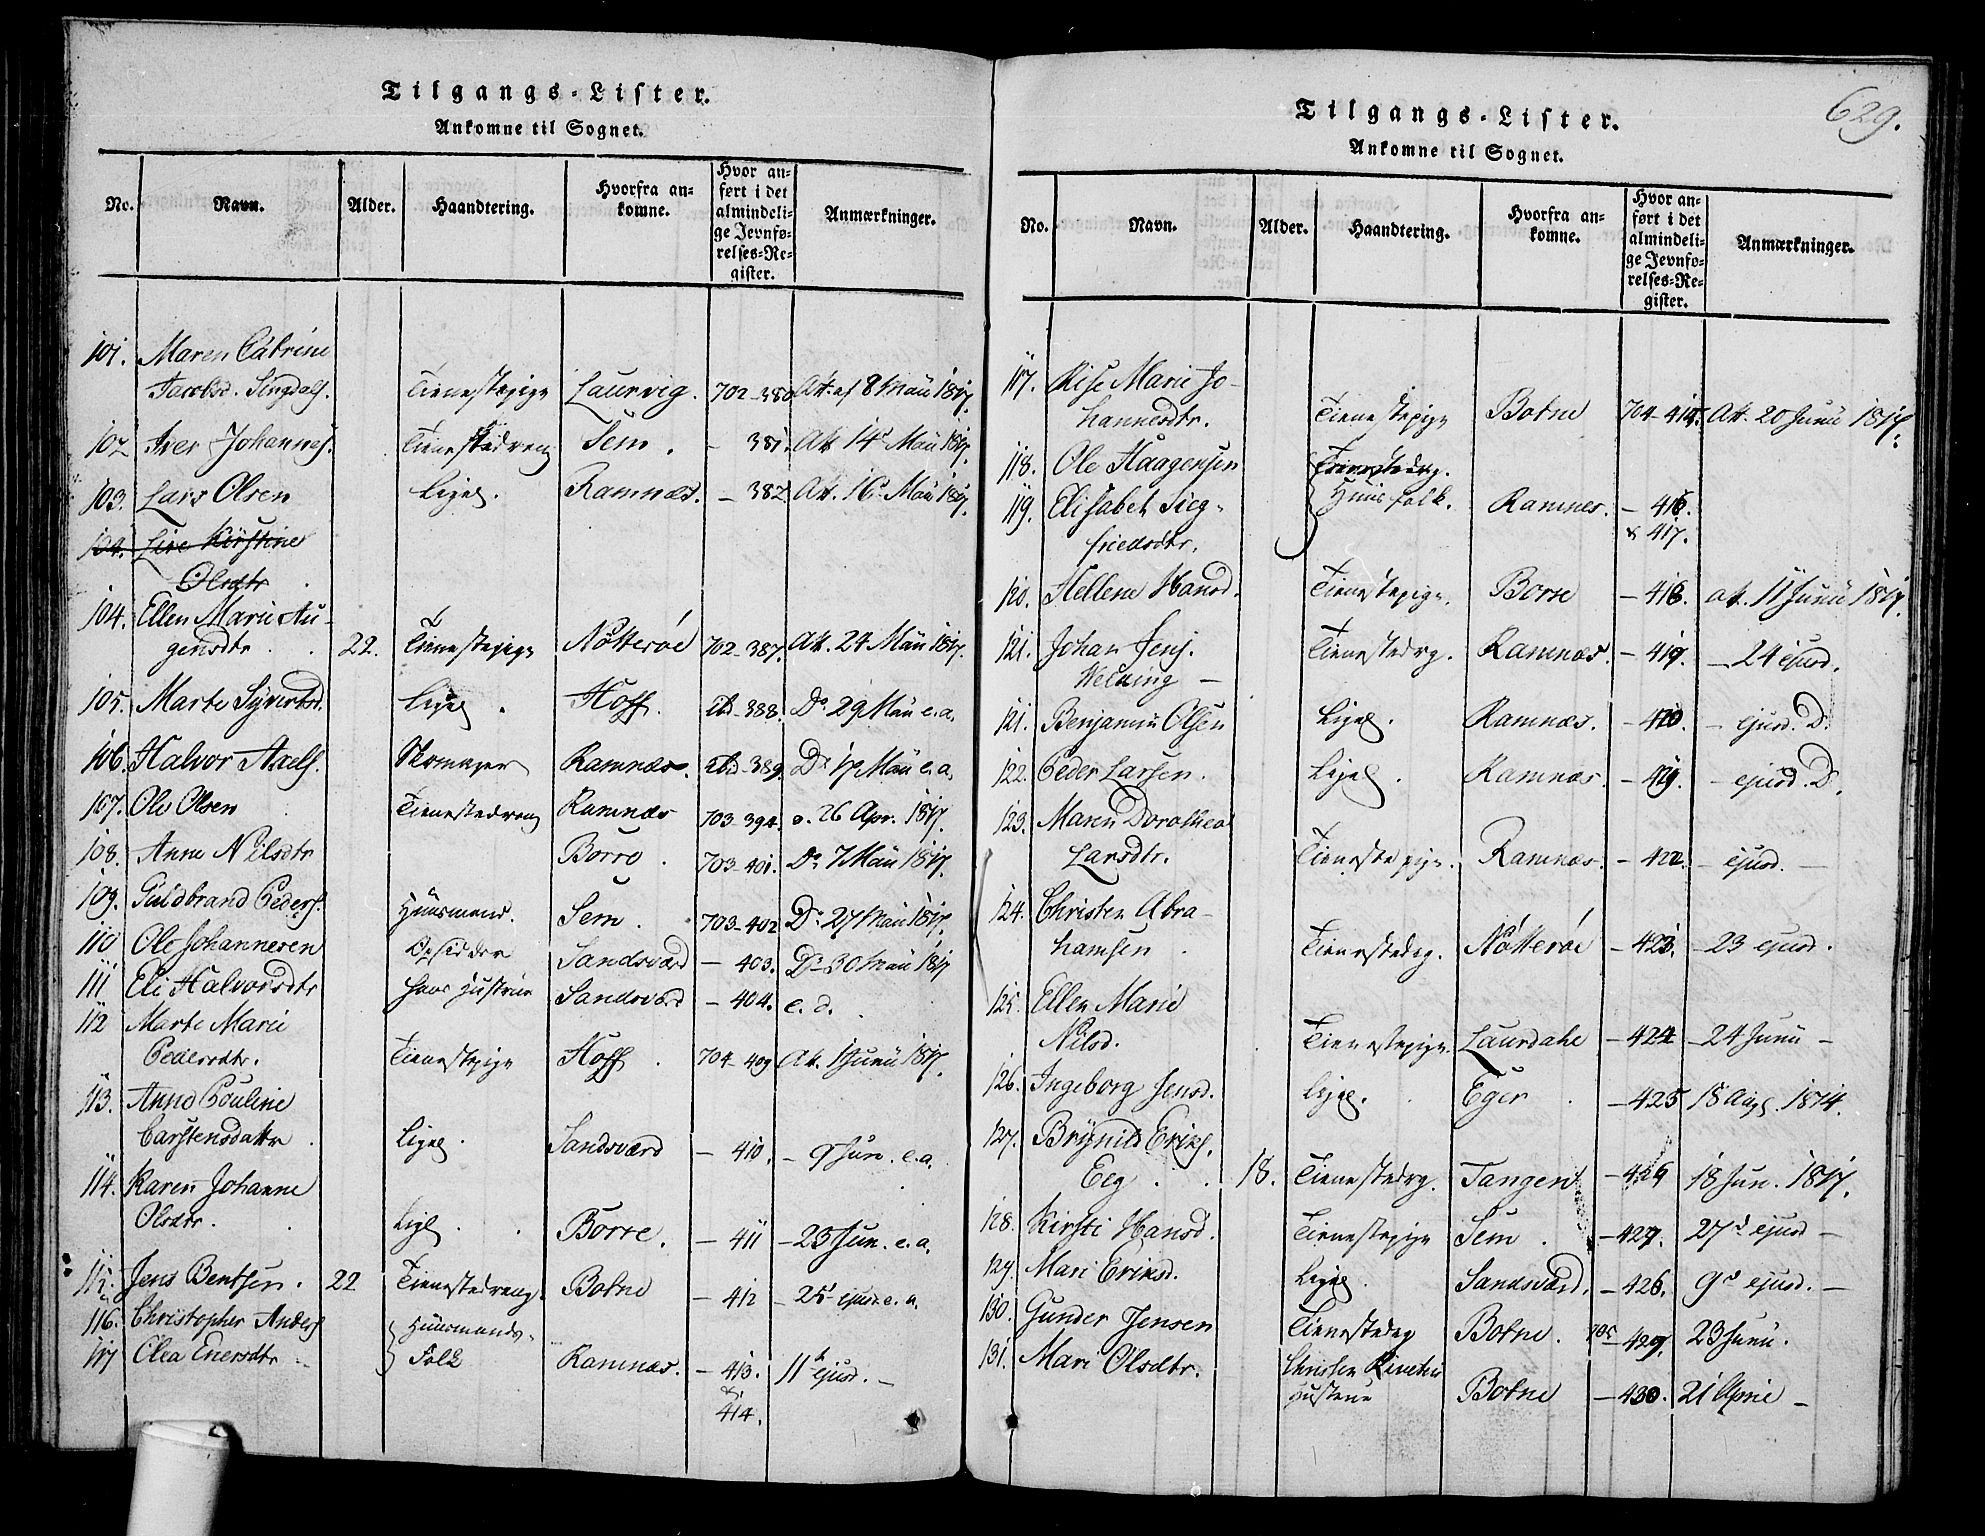 Tilgangs-Lister.
Ankomne til Sognet.
No. Navn. Alder. Haandtering. Hvorfra an=komne. Hvor an=ført i det almindeli=ge Jevnfø=relses=Re=gister. Anmærkninger.
101. Maren Catrine
Jacobsd. Tienestepige Laurvig. 702-380 Att. af 8 Maii 1817.
102 Iver Johannes. Tienestedreng Sem. - 381. Att 14 Maii 1817.
103. Lars Olsen Ligel. Ramnæs. - 382 Att. 16 Maii 1817.
104. Live Kirstine
Olsdtr.
104. Ellen Marie Au-
gensdtr. 22. Tienestepige Nøtterøe 702-387. Att. 24 Maii 1817.
105. Marte Syvertsd. Ligel. Hoff. 388. Do 29 Maii e.a.
106. Halvor Axels. Skomager Ramnæs. 389. Do 17 Maii e.a.
107. Ole Olsen Tienestedreng Ramnæs 703-394. 26 Apr. 1817.
108. Anne Nilsdtr Borre. 703-401. Do 7 Maii 1817.
109. Guldbrand Peders. Huusmand. Sem. 703-402 Do 27 Maii 1817.
110 Ole Johannesen Opsidder Sandsværd - 403. Do 30 Maii 1817
111 Eli Halvorsdtr hans Hustrue Sandsværd - 404. e. d.
112 Marte Marie
Pedersdtr. Tienestepige Hoff. 704-409 At. 1 Junii 1817.
113. Anne Pouline
Carstensdattr. Ligel. Sandsværd - 410. - 9 Jun. e.a.
114. Karen Johanne
Olsdtr. Ligl. Borre. - 411 - 23 Jun. e.a.
115. Jens Bentsen. 22 Tienestedreng. Botne - 412 - 25 ejusd. e.a.
116. Christopher Anders Huusmands-
117 Olea Enersdtr Folk Ramnæs. - 413. 11 ejusd. -
&
414.
629.
Tilgangs-Lister.
Ankomne til Sognet.
No. Navn. Alder. Haandtering. Hvorfra an=komne. Hvor an=ført i det almindeli=ge Jevnfø=relses=Re=gister. Anmærkninger.
117. Lise Marie Jo-
hannesdtr. Tienestepige Botne 704-415. Att. 20 Junii 1817.
118. Ole Haagensen Tienestedrg.
119. Elisabet Sieg- Huusfolk. Ramnes. - 416.
friedsdtr. & 417.
120. Hellene Hansd. Tienestepige. Borre - 418. att. 11 Junii 1817.
121. Johan Jens. Tienestedrg. Ramnæs. - 419. - 24 ejusd.
Welding -
121. Benjamin Olsen Ligel. Ramnæs. - 420. - ejusd. D.
122. Peder Larsen. Ligel. Ramnæs. - 421. - ejusd. D.
123. Maren Dorothea
Larsdtr. Tienestepige. Ramnæs. - 422. - ejusd. -
124. Christen Abra-
hamsen Tienestedrg. Nøtterøe - 423. - 23 ejusd.
125. Ellen Marie
Nilsd. Tienestepige. Laurdahl - 424 - 24 Junii -
126. Ingeborg Jensd. Ligel. Eger - 425 18 Aug. 1814.
127. Brynild Eriks.
Eeg. 18. Tienestedrg. Tangen - 426 18 Jun. 1817.
128. Kirsti Hansd. Tienestepige Sem. - 427. 27d ejusd -
129. Mari Eriksd. Ligel. Sandsværd. - 426. 9d ejusd. -
130. Gunder Jensen Tienestedrg Botne. 705 429. 23 Junii.
131. Mari Olsdtr. Christen
Hustrue Botne - 430. 21 April -